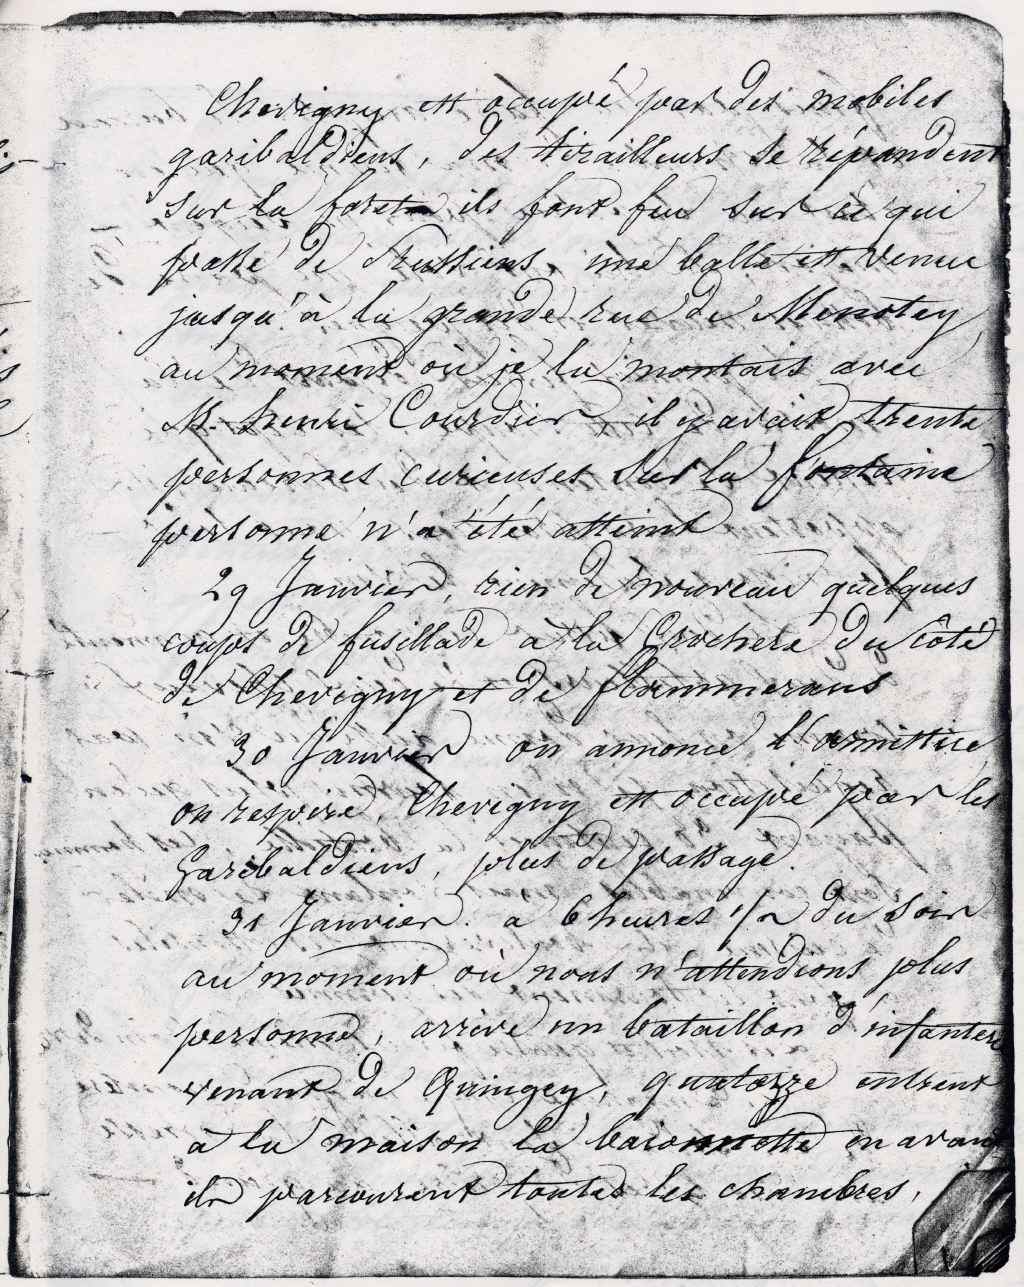 Chevigny est occupé par des mobiles
garibaldiens, des tirailleurs se répandent
sur la foret, ils font feu sur ce qui
passe de Prussiens, une balle est venue
jusqu'à la grande rue de Menotey
au moment où je la montais avec
M. henri Courdier, il y avait trente
personnes curieuses sur la fontaine
personne n'a été atteint
29 Janvier, rien de nouveau quelques
coups de fusillade à la Crochere du côté
de Chevigny et de flammerans
30 Janvier on annonce l'armistice
on respire, Chevigny est occupé par les
Garibaldiens, plus de passage.
31 Janvier. a 6 heures 1/2 du soir
au moment où nous n'attendions plus
personne, arrive un bataillon d'infanterie
venant de Quingey, quatorze entrent
à la maison la baionnette en avant
ils parcourent toutes les chambres,